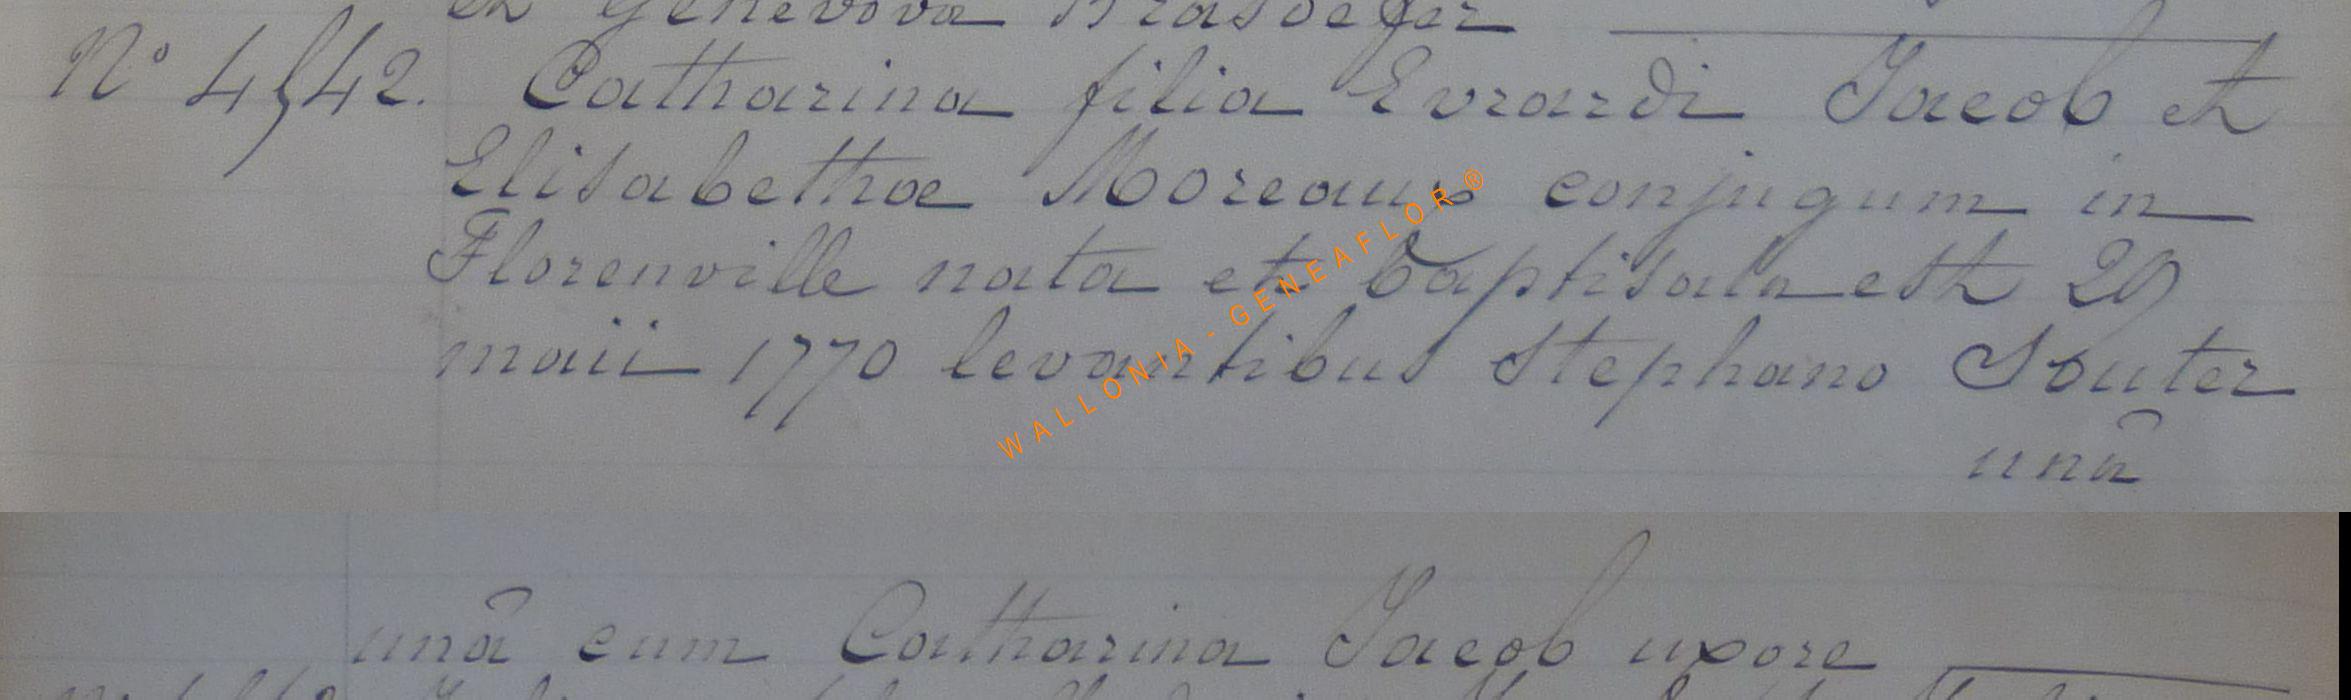 et Genevova Brasdefer
N° 4542. Catharina filia Evrardi Jacob et
Elisabethae Moreaux conjugum in
Florenville nata et baptisata est 29
maii 1770 levantibus Stephano Souter
unâ
unâ cum Catharina Jacob uxore
WALLONIA - GENEAFLOR®